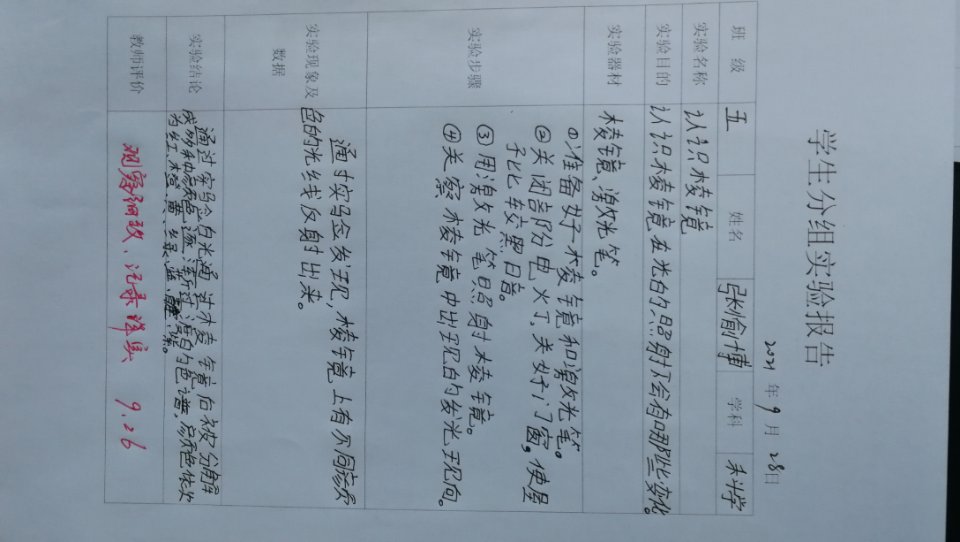 学生分组实验报告
2021年9月28日
班级 五 姓名 张愉博 学科 科学
实验名称 认识棱镜
实验目的 认识棱镜在光的照射下会有哪些变化。
实验器材 棱镜、激光笔。
实验步骤 ①准备好棱镜和激光笔。
②关闭部份电火丁,关好门窗,使屋
子比较黑日音。
③用激光笔照射棱镜。
④关察棱镜中出现的发光现向。
实验现象及数据 通过实验发现,棱镜上有不同颜
色的光线反射出来。
实验结论 通过实验白光通过棱镜后被分解
成多种颜色逐渐过渡的色谱,颜色依次
为红、橙、黄、绿、蓝、靛、紫。
教师评价 观察细致、记录详实 9.26